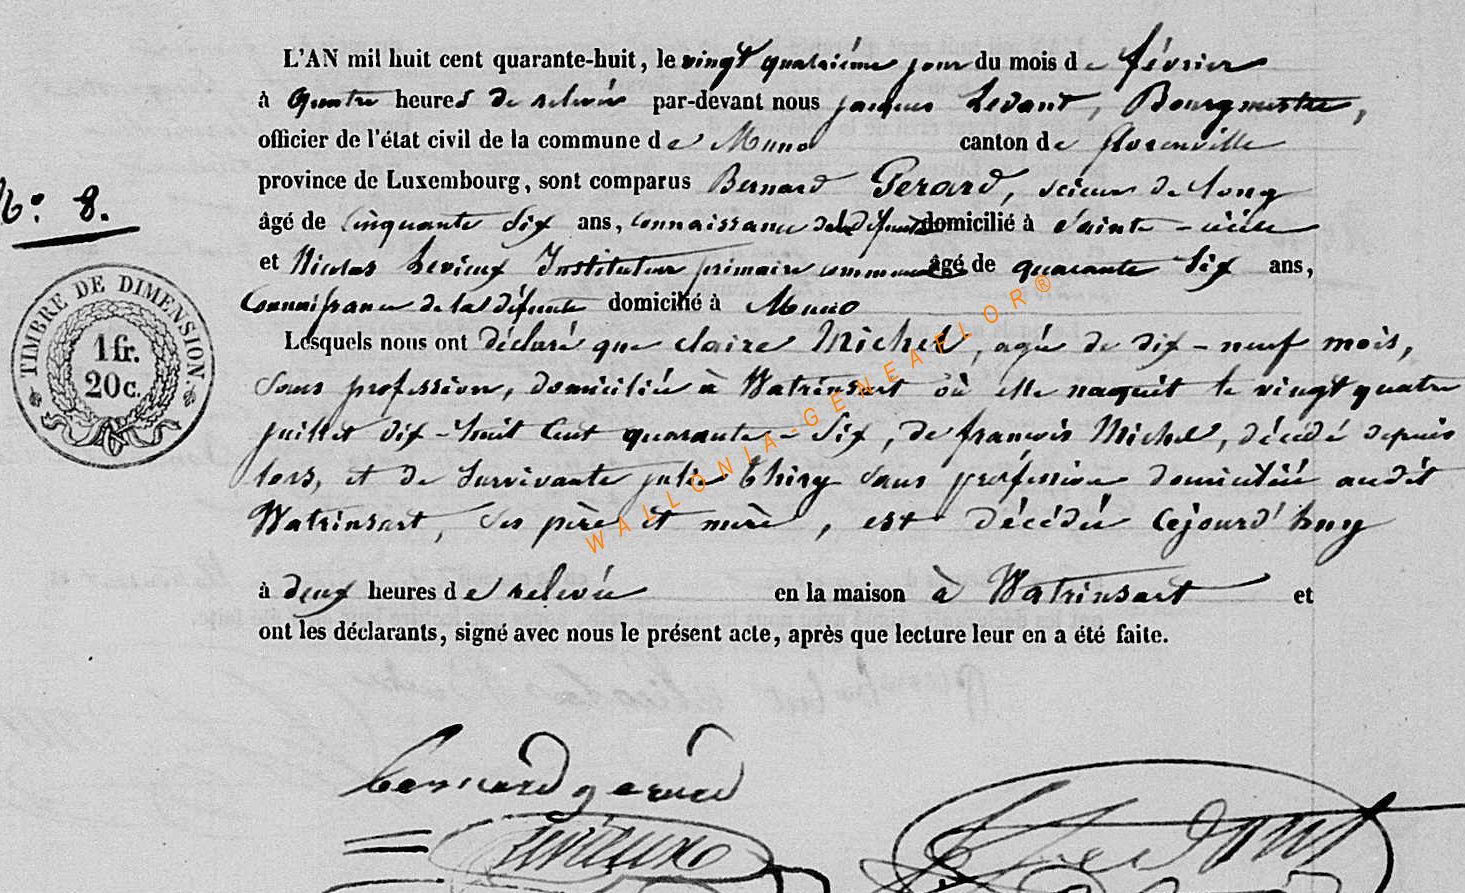 L'AN mil huit cent quarante-huit, le vingt quatrième jour du mois de février
à quatre heures de relevée par-devant nous jacques Ledant, Bourgmestre,
officier de l'état civil de la commune de Muno canton de florenville
province de Luxembourg, sont comparus Bernard Gerard, scieur de long
No. 8.
âgé de cinquante six ans, connaissance de la défunte domicilié à Sainte-cécile
et Nicolas Levieux Instituteur primaire communal âgé de quarante six ans,
connaissance de la défunte domicilié à Muno
Lesquels nous ont déclaré que claire Michel, agée de dix-neuf mois,
sans profession, domiciliée à Watrinsart où elle naquit le vingt quatre
juillet dix-huit cent quarante-six, de françois Michel, décédé depuis
lors, et de survivante julie Thiry sans profession domiciliée audit
Watrinsart, ses père et mère, est décédée cejourd'huy
à deux heures de relevée en la maison à Watrinsart et
ont les déclarants, signé avec nous le présent acte, après que lecture leur en a été faite.
TIMBRE DE DIMENSION.
1 fr.
20 c.
WALLONIA-GENEAFLOR®
bernard gerard
Levieux
Ledant